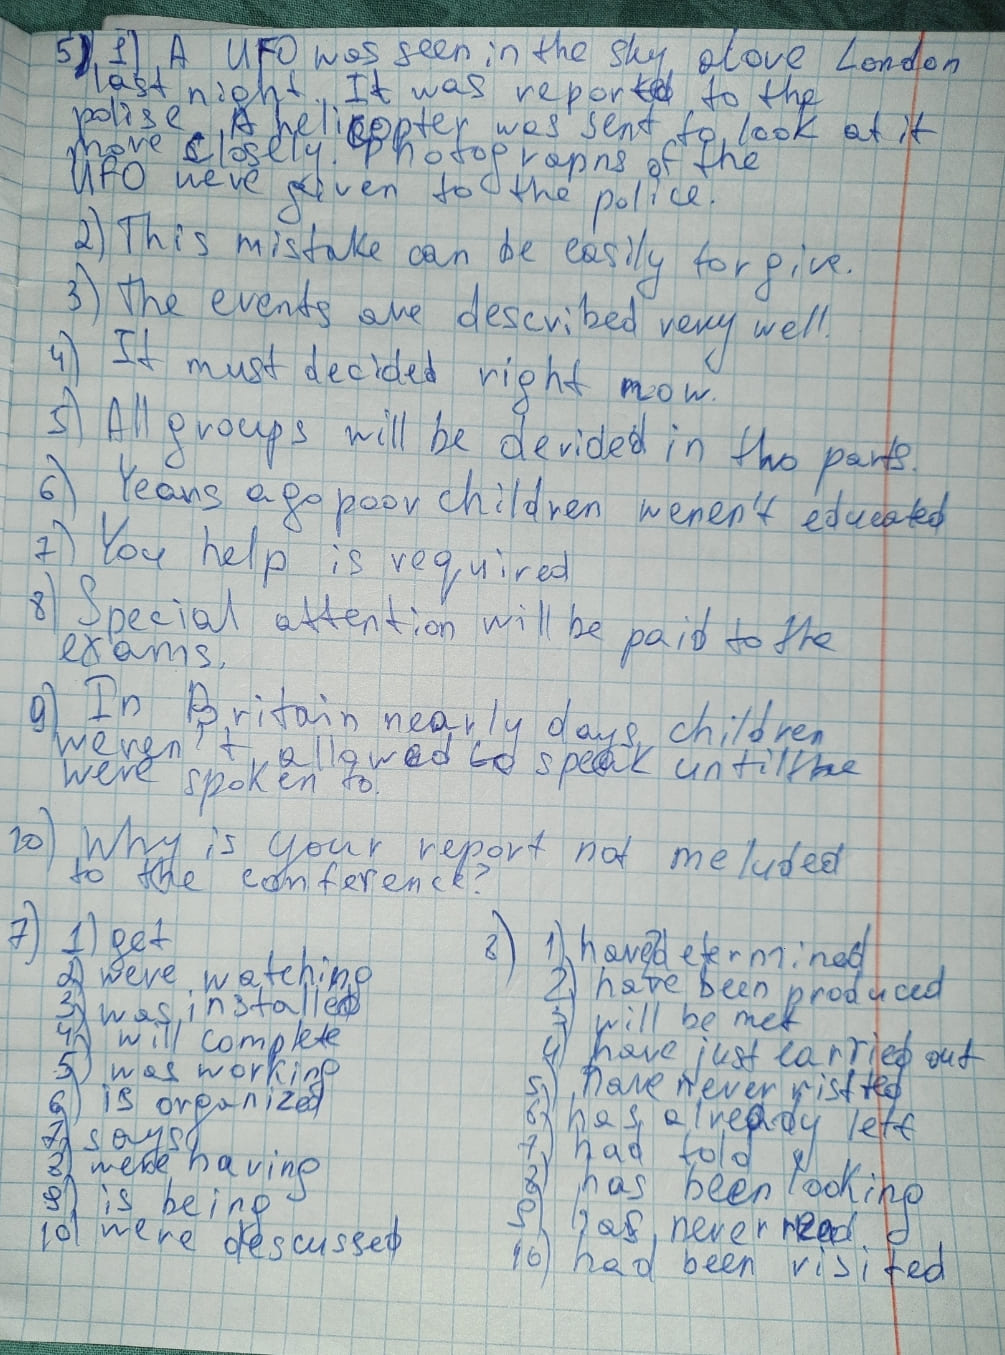 5) 1) A UFO was seen in the sky above London
last night. It was reported to the
polise. A helicopter was sent to look at it
more closely. Photographs of the
UFO were given to the police.
2) This mistake can be easily forgive.
3) The events are described very well.
4) It must decided right now.
5) All groups will be devided in two parts.
6) Years ago poor children weren't educated
7) You help is required
8) Special attention will be paid to the
exams.
9) In Britain nearly days children
weren't allowed to speak until the
were spoken to.
10) Why is your report not included
to the conference?
7) 1) get
2) were watching
3) was installed
4) will complete
5) was working
6) is organized
7) says
8) were having
9) is being
10) were descussed
8) 1) have determined
2) have been produced
3) will be met
4) have just carried out
5) have never visited
6) has already left
7) had told
8) has been looking
9) has never read
10) had been visited